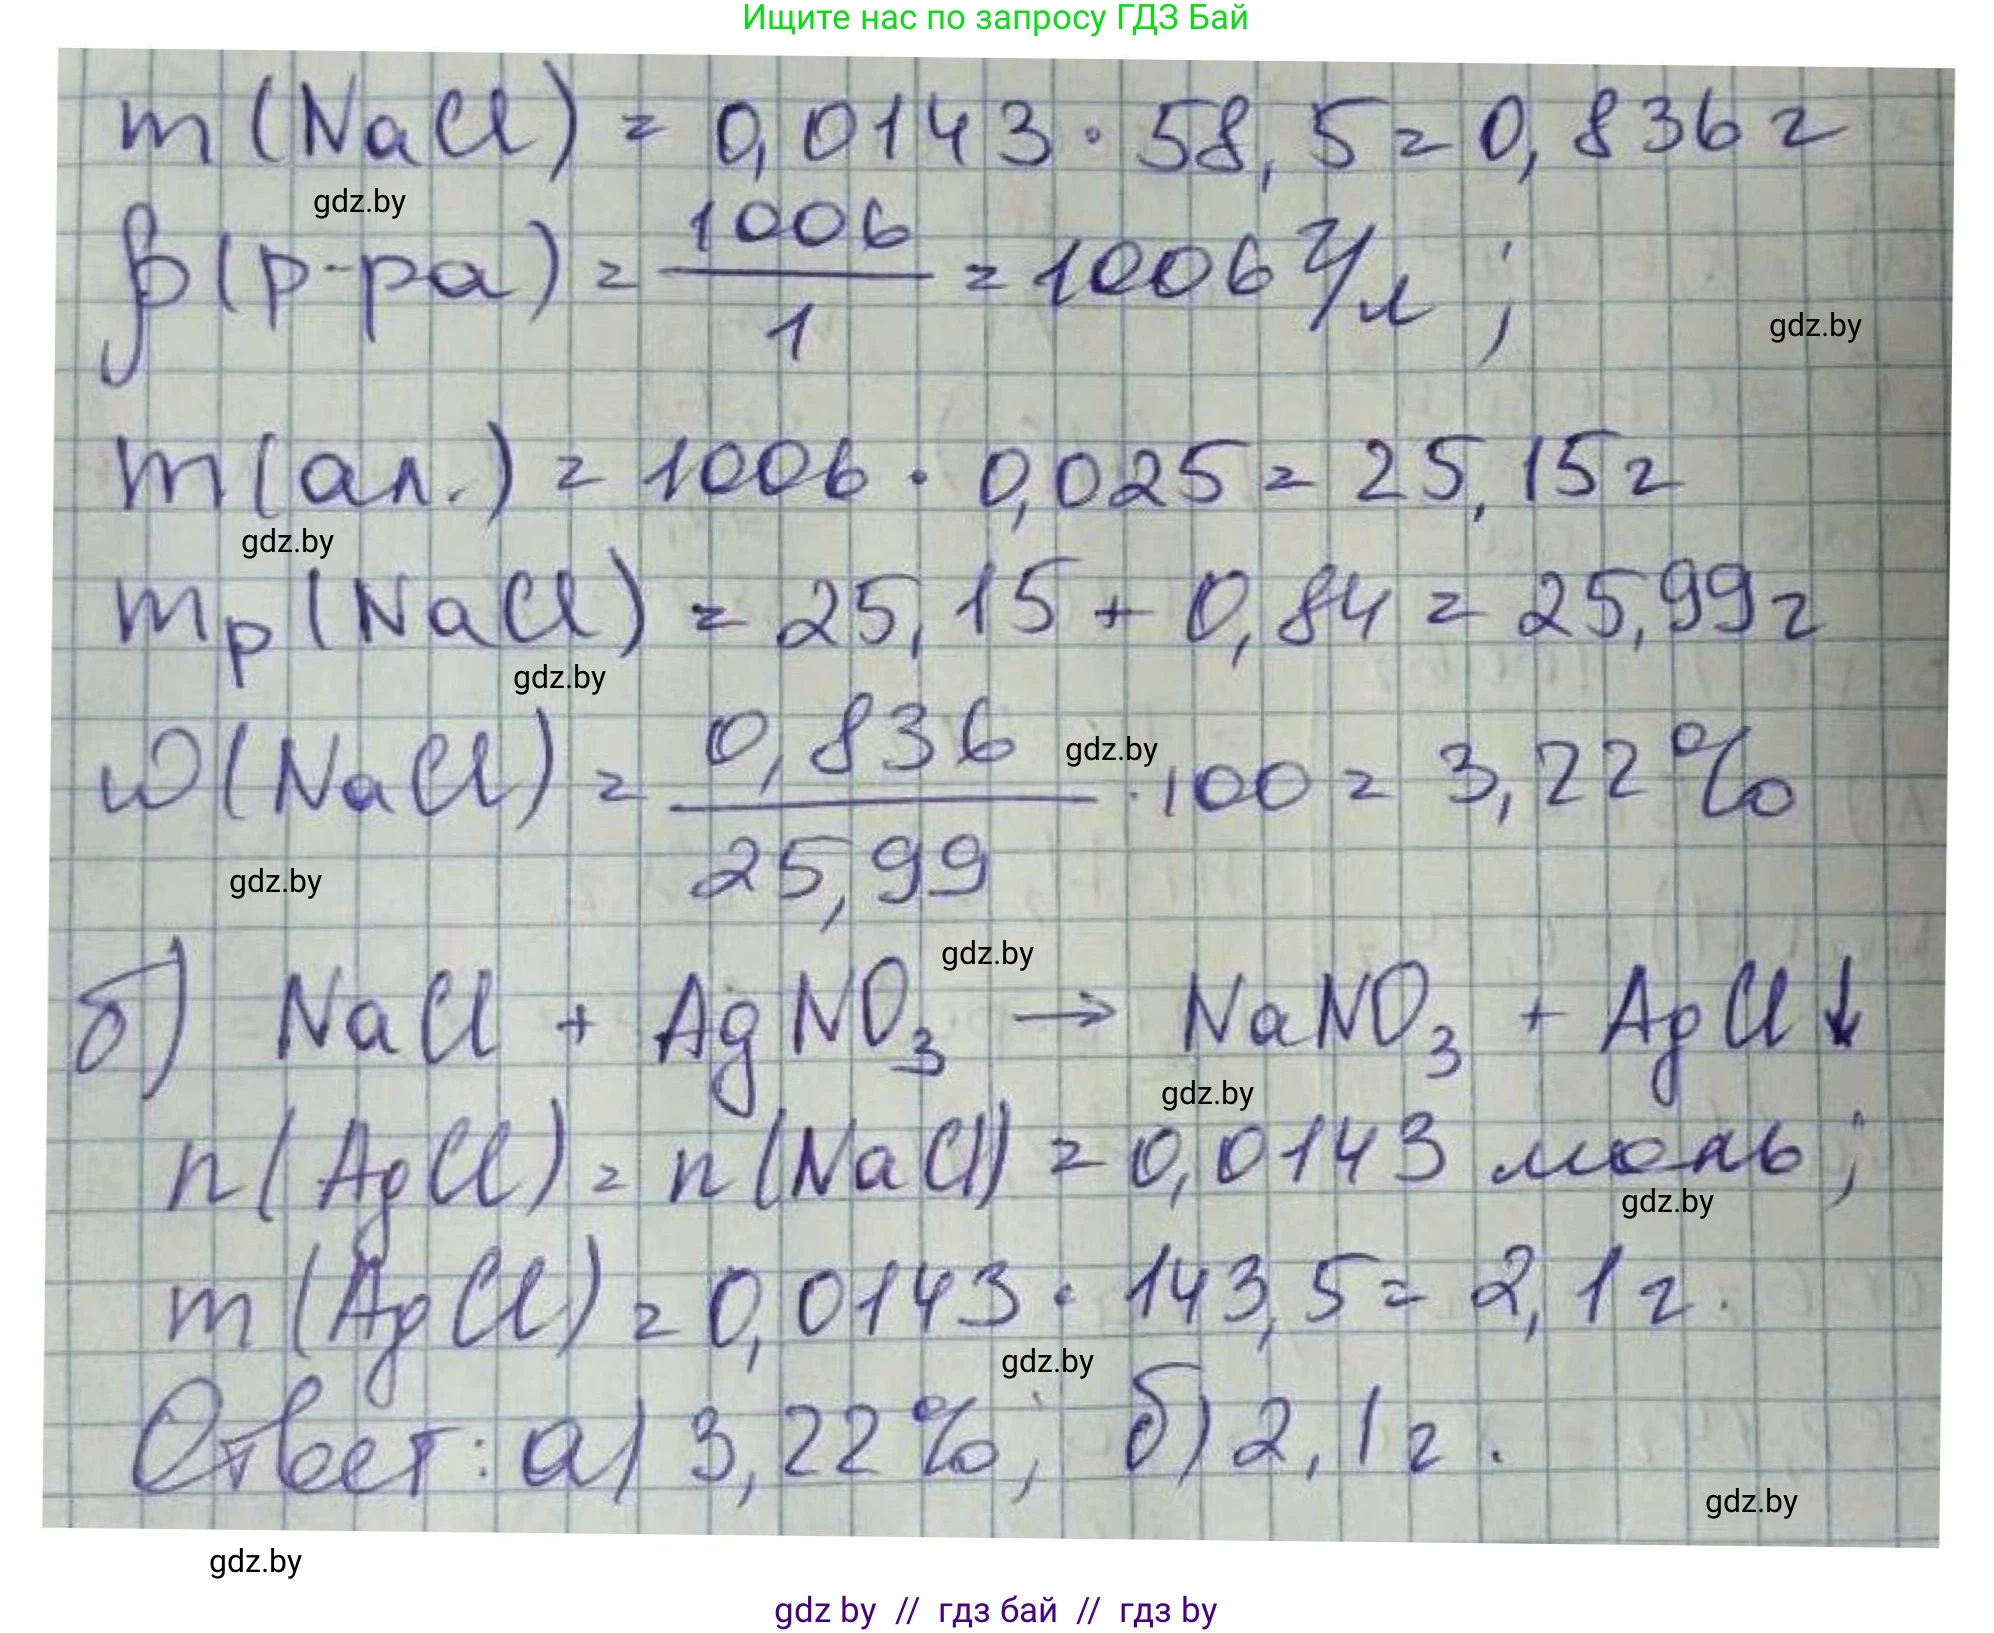 Ищите нас по запросу ГДЗ Бай
m(NaCl) = 0,0143 · 58,5 = 0,836 г
gdz.by
ρ(р-ра) = 1006/1 = 1006 г/л ;
gdz.by
m(ал.) = 1006 · 0,025 = 25,15 г
gdz.by
mр(NaCl) = 25,15 + 0,84 = 25,99 г
gdz.by
ω(NaCl) = 0,836/25,99 · 100 = 3,22%
gdz.by
gdz.by
gdz.by
б) NaCl + AgNO₃ → NaNO₃ + AgCl↓
gdz.by
n(AgCl) = n(NaCl) = 0,0143 моль ;
gdz.by
m(AgCl) = 0,0143 · 143,5 = 2,1 г.
gdz.by
Ответ: а) 3,22% ; б) 2,1 г .
gdz.by
gdz.by
gdz by // гдз бай // гдз by